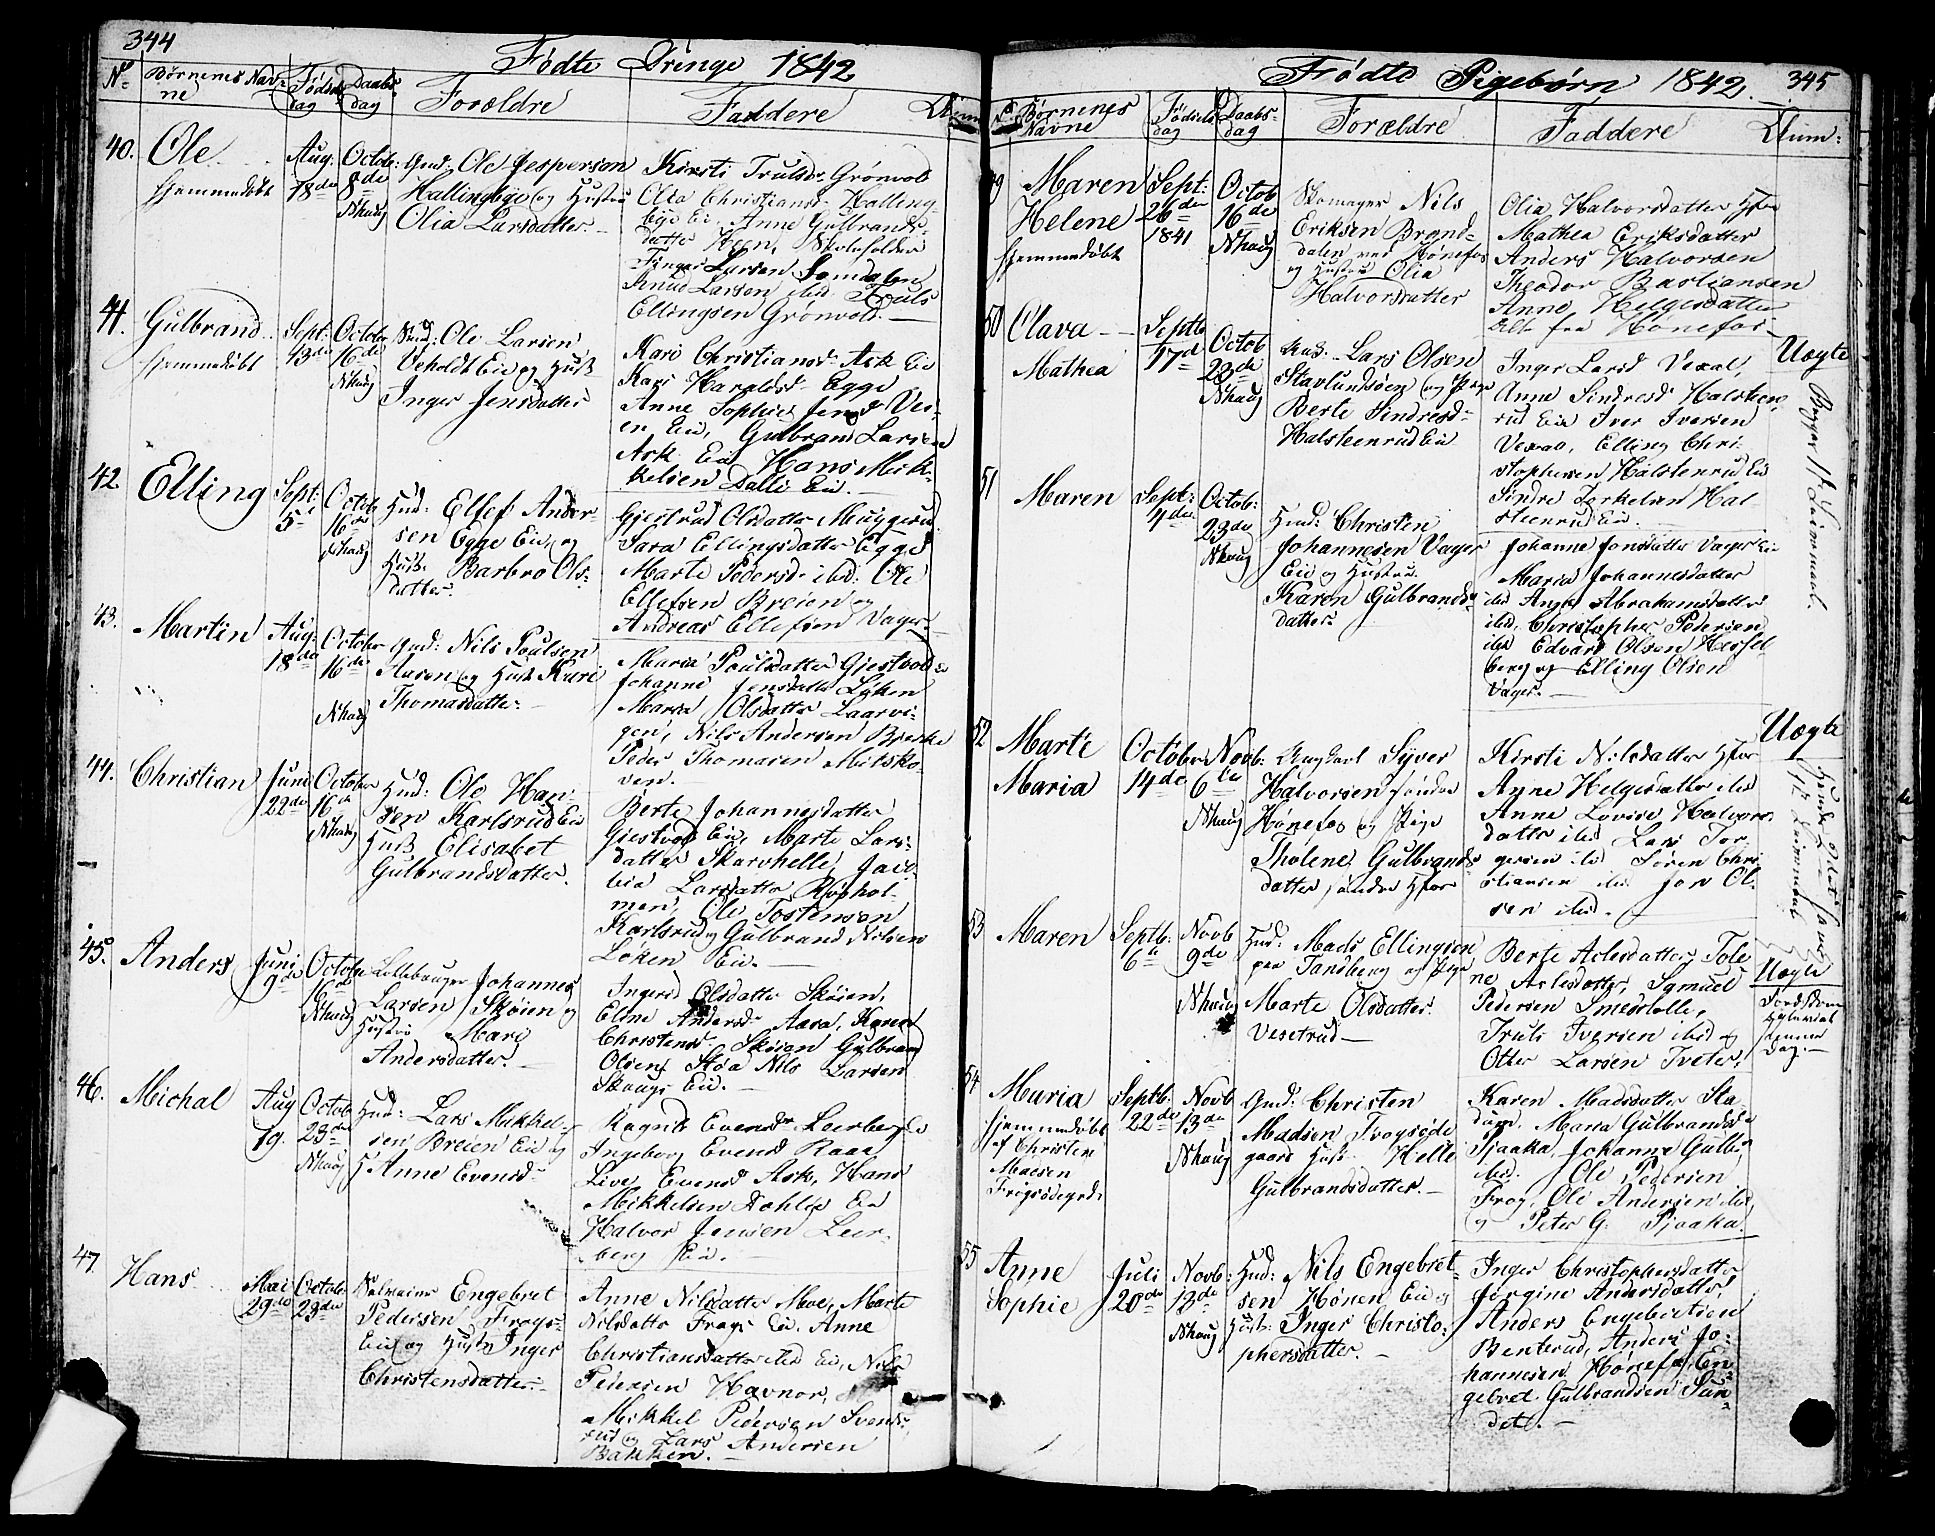 344
Fødte Drenge 1842
No Børnenes Nav- Fødsels Daabs
ne dag dag Forældre Faddere
40. Ole
hjemmedøbt
Aug:
18de
Octob:
8de
Nhaug
Gmd: Ole Jespersen
Hallingbye og Hustru
Olia Larsdatter.
Kirsti Trulsd: Grønvold
Olia Christiansd: Halling-
bye Eie, Anne Gulbrands-
datter Heen,
Larsen Somdalen
Knud Larsen ibid: Truls
Ellingsen Grønvold.
41. Gulbrand
hjemmedøbt
Sept:
13de
Octobr
16de
Nhaug
Ole Larsen
Veholdt Eie og Hust:
Inger Jensdatter
Kari Christiansd: Ask Eie
Kari Haraldsd: Egge
Anne Sophie Jensd Ve-
en Eie, Gulbrand Larsen
Ask Eie Hans Mik-
kelsen Eie.
42 Elling
Sept:
5te
Octob
16de
Nhaug
Hmd: Ellef Ander-
sen Egge Eie, og
Hust: Barbro Ols-
datter.
Gjertrud Olsdatter Muggerud
Sara Ellingsdatter Egge
Marte Pedersd: ibid: Ole
Ellefsen Breien og
Andreas Ellefsen Vager.
43. Martin
Aug:
18de
Octobr
16de
Nhaug
Gmd: Nils Poulsen
Aasen og Hust: Kari
Thomasdatter.
Maria Poulsdatter Gjestvold
Johanne Jensdatter Løken
Maria Olsdatter Laarvi-
gen, Nils Andersen
Peder Thomasen
ven.
44. Christian
Juni
22de
Octobr
16de
Nhaug
Hmd: Ole Han-
sen Karlsrud Eie
Hust: Elisabet
Gulbrandsdatter.
Berte Johannesdatter
Gjestvold Eie, Marte Lars-
datter Skarvhelle, Jaco-
bia Larsdatter
men, Ole Tostensen
Karlsrud og Gulbrand Nilsen
Løken Eie.
45. Anders
Juni
9de
Octobr
16de
Nhaug
Johannes
Larsen Skøien og
Hustru Mari
Andersdatter.
Ingerid Olsdatter Skøien,
Eline Andersd: Aasa, Karen
Christensd: Skøien Gulbrand
Olsen Nils Larsen
Skougs Eie.
46. Michal
Aug
19.
Octob
23de
Nhaug
Hmd: Lars Mikkel-
sen Breien Eie og
H Anne Evensd:
Ragnild Evensd Leerberg
Ingeborg Evensd Raae
Live Evensd Ask, Hans
Mikkelsen Dahlie Eie
Halvor Jensen Leer-
berg Eie.
47. Hans
Mai
29de
Octob:
23de
Engebret
Pedersen Frogs-
Eie og Hustr Inger
Christensdatter.
Anne Nilsdatter Moe, Marte
Nilsdatter Frogs Eie, Anne
Christiansdatter ibid Eie, Nils
Pedersen Havnor,
Mikkel Pedersen Svends-
rud og Lars Andersen
Bakken.
Fødte Pigebørn 1842. 345
Børnenes
Navne
Fødsels
dag
Daabs-
dag
Forældre
Faddere
Anm:
49 Maren
Helene
hjemmedøbt
Sept:
26de
1841
Octob
16de
Nhaug
Skomager Nils
Eriksen Brand-
dalen ved Hønefos
og Hustru Olia
Halvorsdatter
Olia Halvorsdatter Hfos
Mathea Eriksdatter
Anders Halvorsen
Theodor Bastiansen
Anne Helgesdatter
Alle fra Hønefos
50 Olava
Mathea
Septb
17de
Octob
23de
Nhaug
Lars Olsen
Stavlundsøen og Pige
Berte Sindresd:
Halsteenrud Eie
Inger Larsd Vexal,
Anne Sindresd Halsteen-
rud Eie Iver Iversen
Vexal, Elling Chri-
stophersen Halstenrud Eie
Sindre Torkelsen Hal-
steenrud Eie.
Uægte
Begges 1te Leiermaal.
51 Maren
Sept:
4de
Octob:
23de
Nhaug
Hmd: Christen
Johannesen Vager
Eie og Hustru
Karen Gulbrands-
datter
Johanne Jonsdatter Vager Eie
Maria Johannesdatter
ibid Anne Abrahamsdatter
ibid, Christopher Pedersen
ibid Edvard Olsen Hessel-
berg og Elling Olsen
Vager.
52 Marte
Maria
October
14de
Novb:
6te
Nhaug
Ungkarl Syver
Halvorsen søndre
Hønefos og Pige
Tholene Gulbrands-
datter søndre Hfos
Kirsti Nilsdatter Hfos
Anne Helgesdatter ibid
Anne Lovise Halvors-
datter ibid Lars Tor-
gersen ibid Søren Chri-
stiansen ibid Jon Ol-
sen ibid.
Uægte
53 Maren
Septb:
6te
Novb
9de
Nhaug
Hmd: Mads Ellingsen
paa Tandberg og Pige
Marte Olsdatter
Vesetrud
Berte Aslesdatter, Tole
ne Aslesdatter, Samuel
Pedersen Smestelle,
Truls Iversen ibid og
Otter Larsen Tveter,
Uægte
54 Maria
hjemmedøbt
af Christen
Madsen
Septb:
22de
Novb
13de
Nhaug
Gmd: Christen
Madsen Frogsøde-
gaard Hust: Helle
Gulbrandsdatter.
Karen Madsdatter Sta-
dum, Maria Gulbrandsd:
Pjaaka, Johanne Gulb:
ibid. Ole Pedersen
Frog, Ole Andersen ibid,
og Peter G: Pjaaka.
55 Anne
Sophie
Juli
20de
Novb:
13de
Nhaug
Hmd: Nils Engebret-
sen Hønen Eie og
Hust: Inger Christo-
phersdatter.
Inger Christophersdatter
Jørgine Andersdatter,
Anders Engebretsen
Benterud, Anders Jo-
hannesen Hønefos, En-
gebret Gulbrandsen Sun-
det.